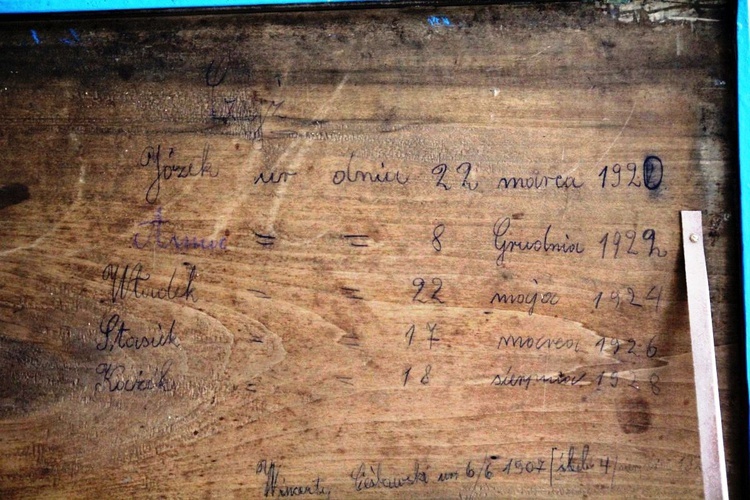 Józik ur dniu 22 marca 1920
= = 8 Grudnia 1922
Władek = = 22 maja 1924
Stasiek = = 17 marca 1926
= = 18 sierpnia 1928
Wincenty ur 6/6 1907